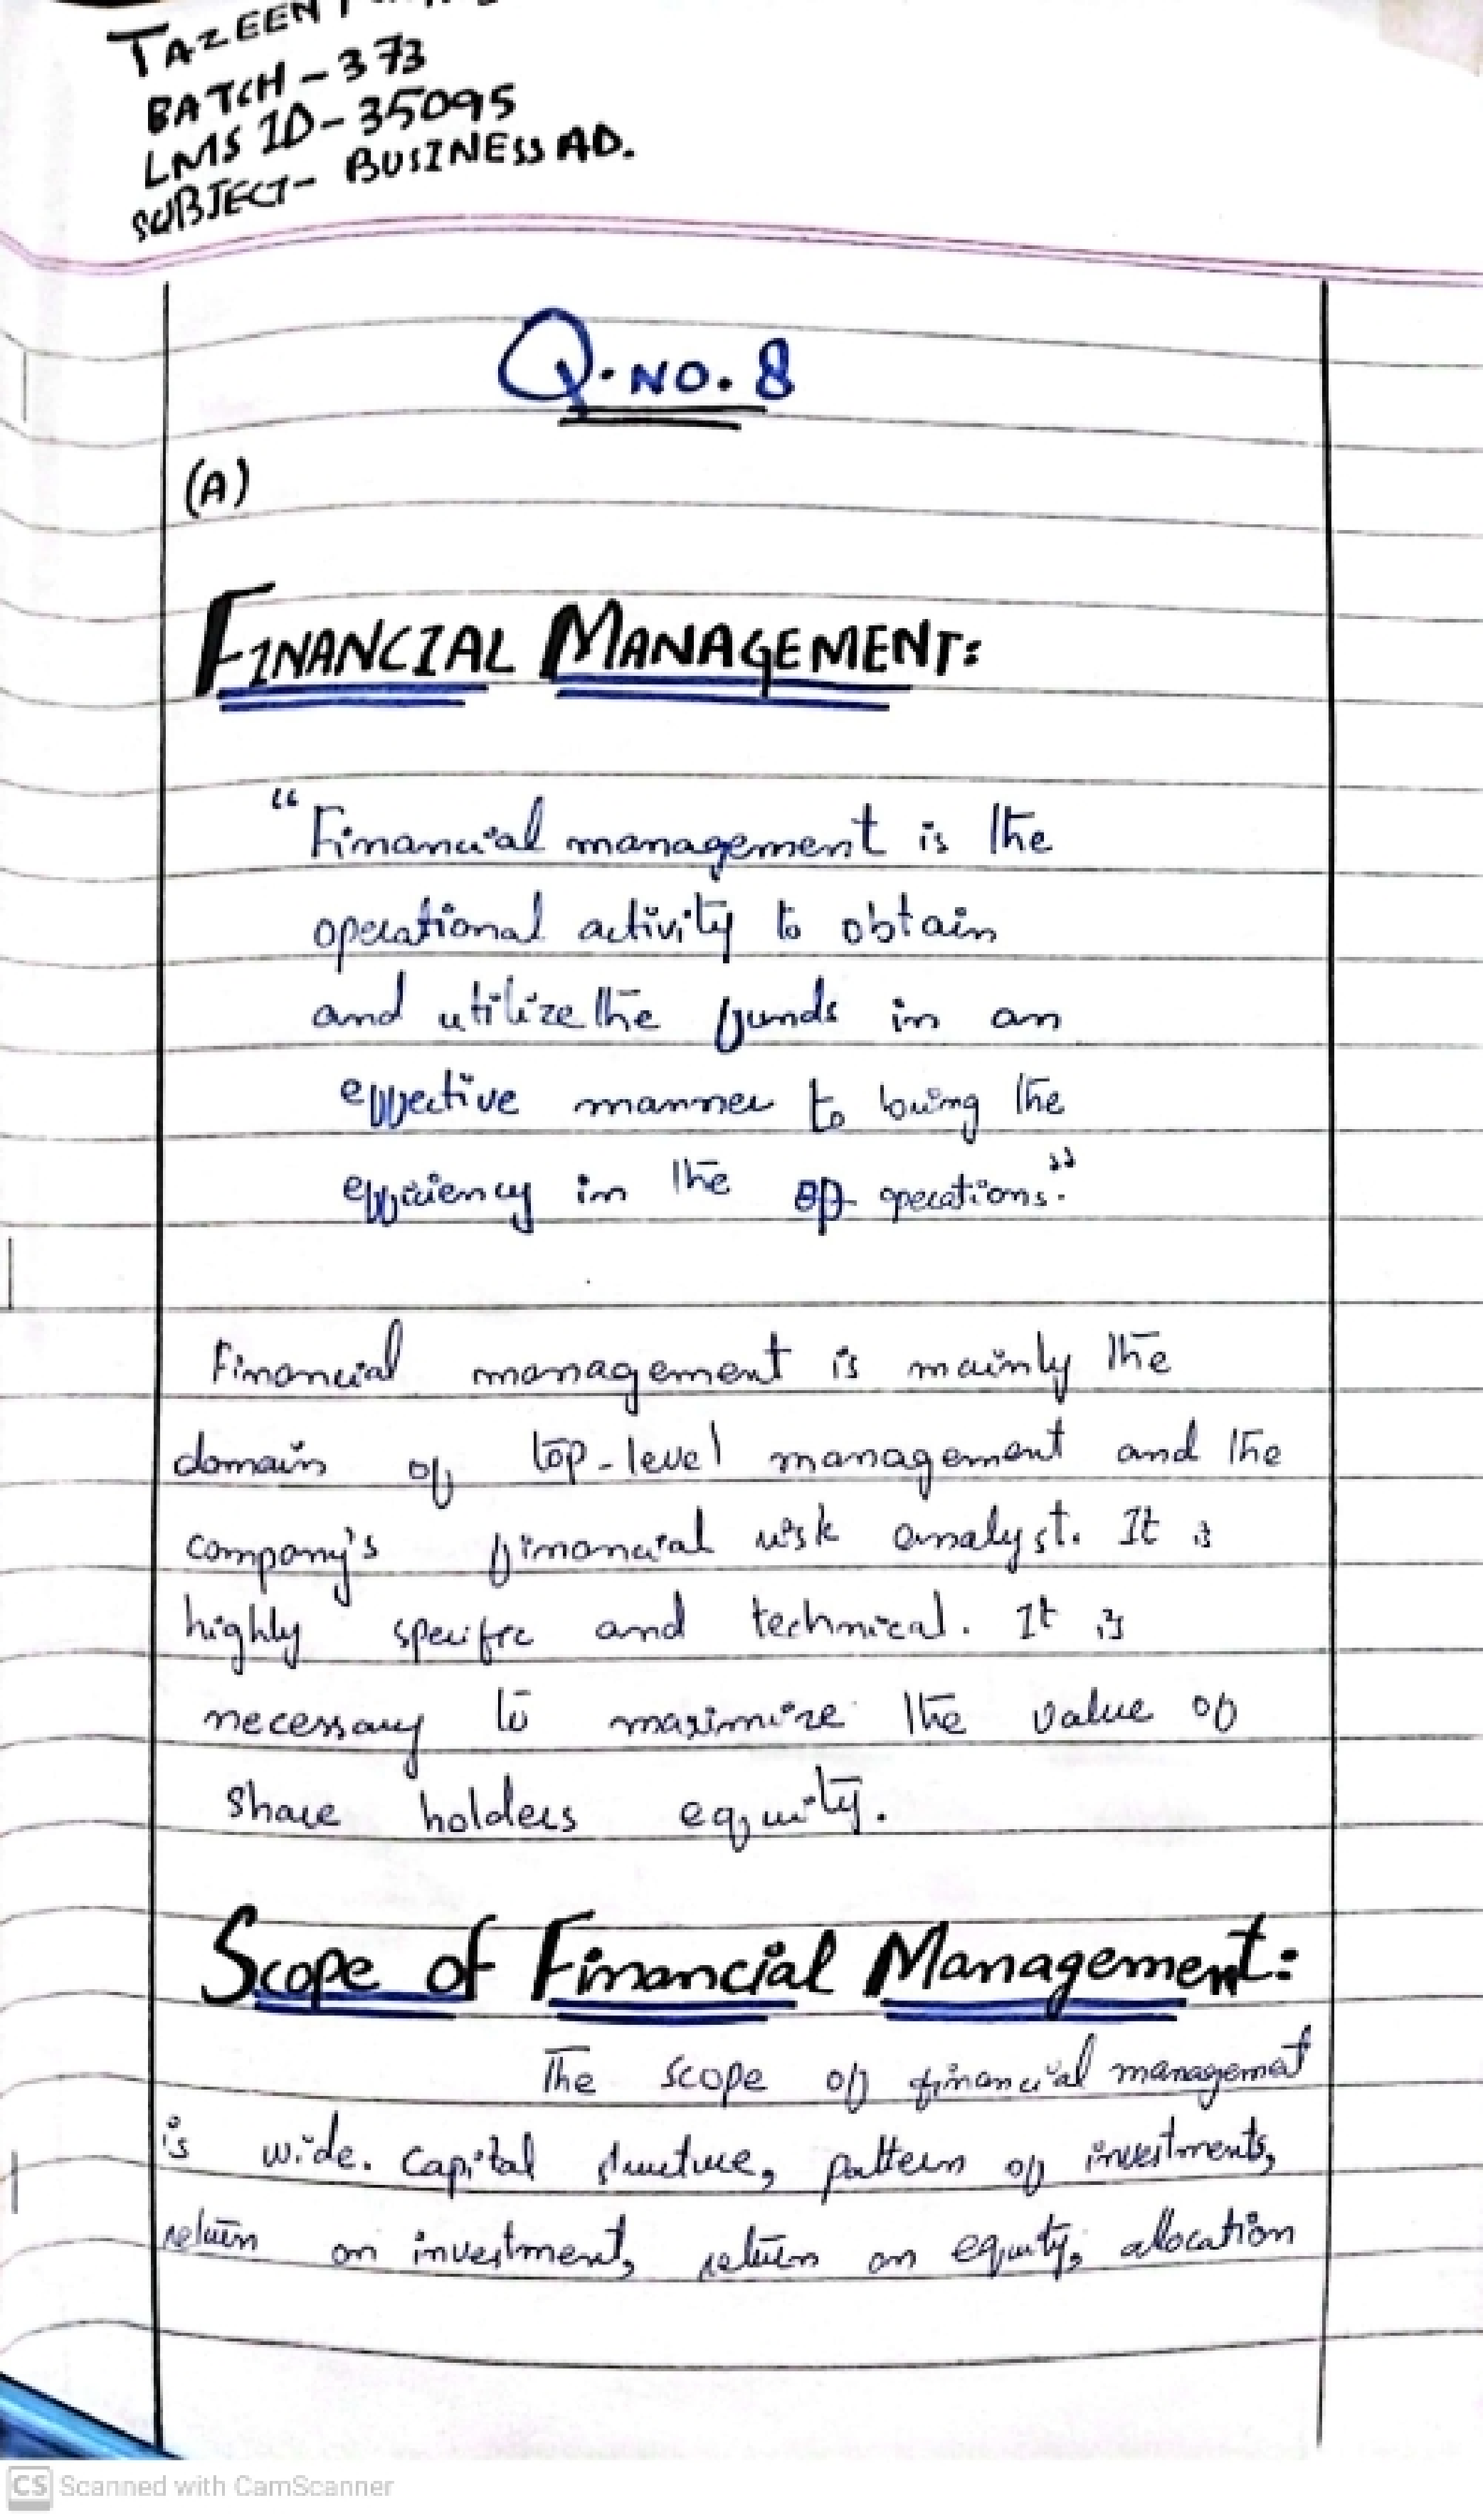 TAZEEN
BATCH-373
LMS ID-35095
SUBJECT- BUSINESS AD.
Q.NO.8
(A)
FINANCIAL MANAGEMENT:
"Financial management is the
operational activity to obtain
and utilize the funds in an
effective manner to bring the
efficiency in the operations."
Financial management is mainly the
domain of top-level management and the
company's financial risk analyst. It is
highly specific and technical. It is
necessary to maximize the value of
share holders equity.
Scope of Financial Management:
The scope of financial managemet
is wide. Capital structure, pattern of investments,
return on investment, return on equity, allocation
CS Scanned with CamScanner